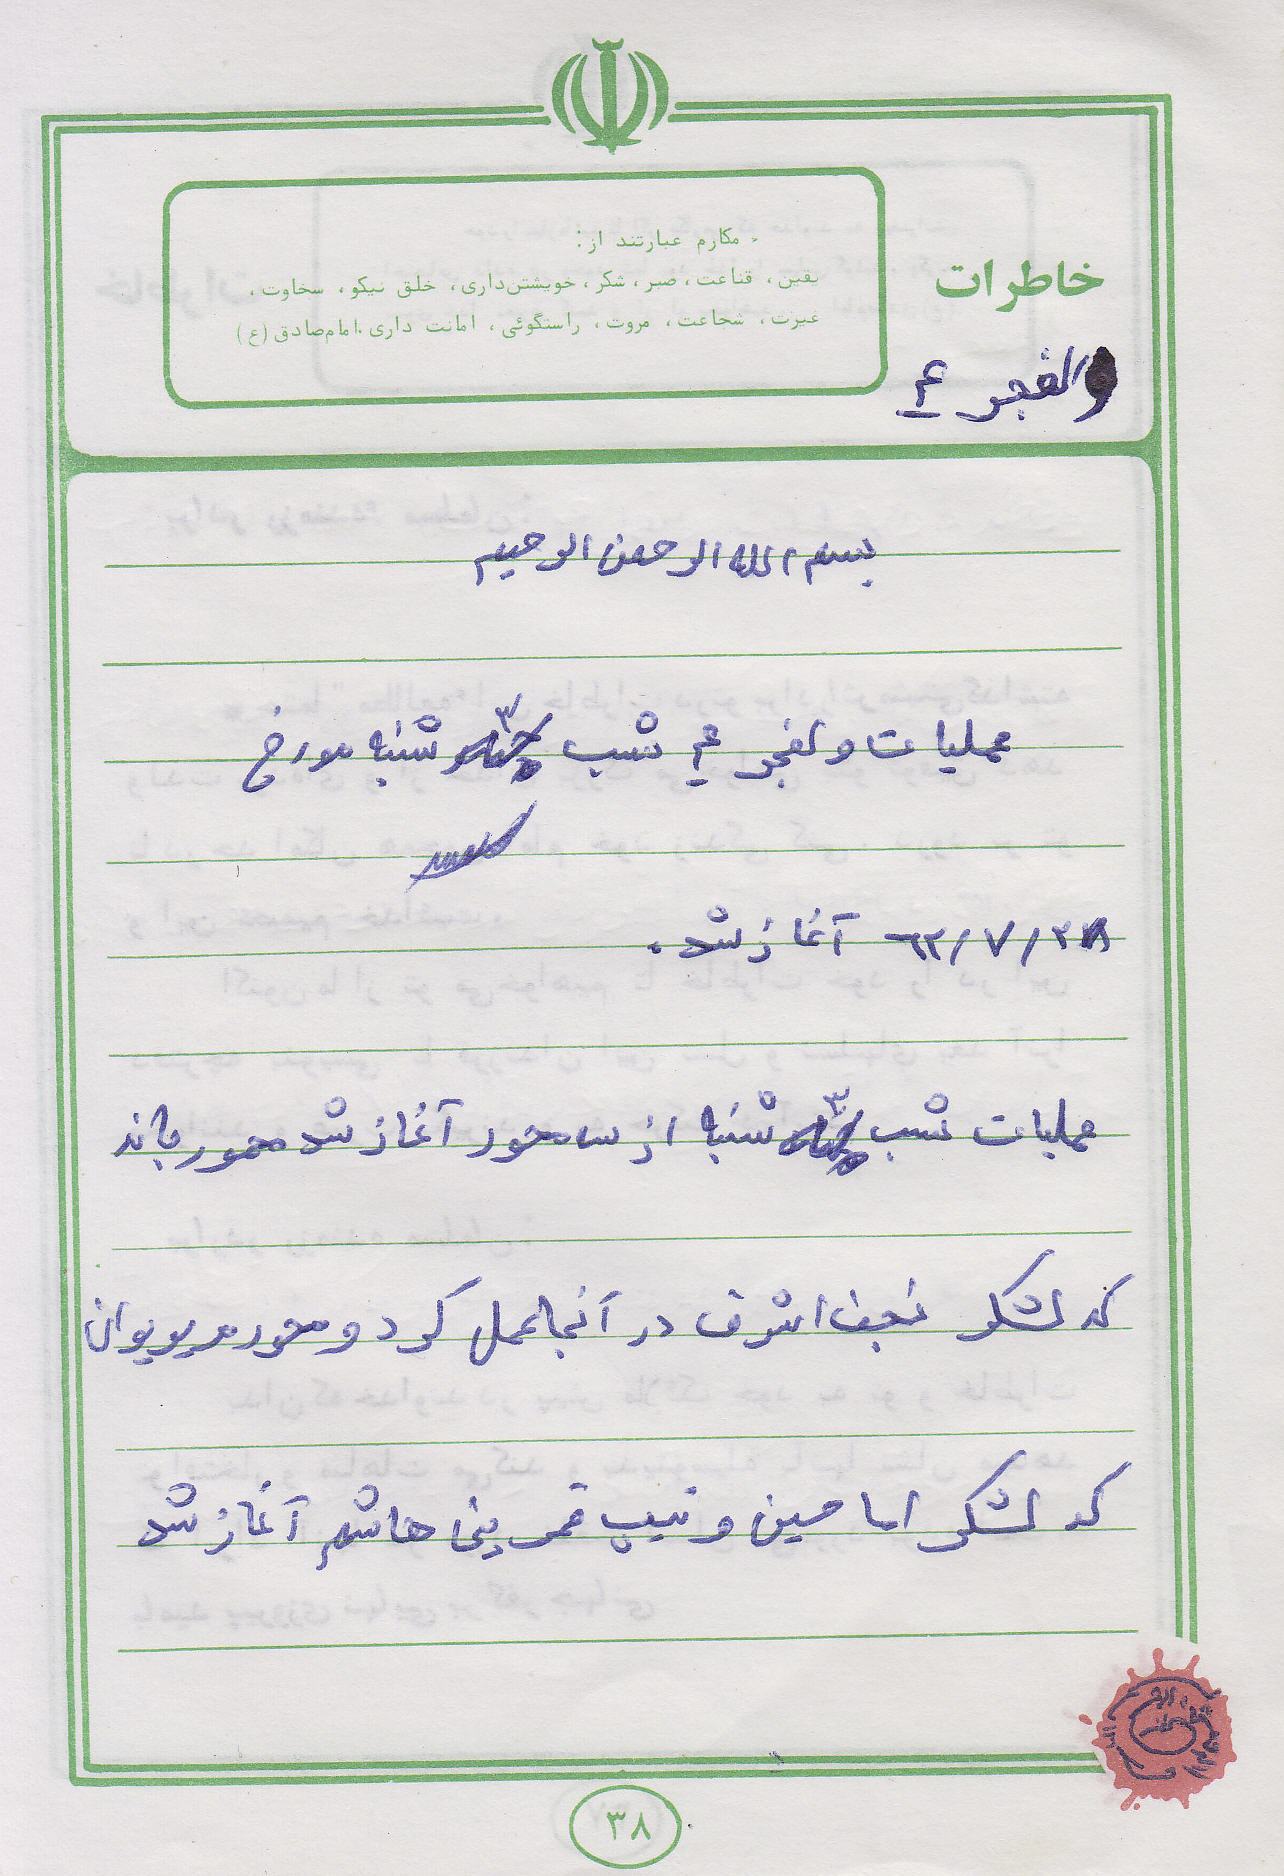 خاطرات
مکارم عبارتند از:
یقین، قناعت، صبر، شکر، خویشتن‌داری، خلق نیکو، سخاوت،
غیرت، شجاعت، مروت، راستگوئی، امانت داری. امام صادق (ع)
والفجر ۴
بسم الله الرحمن الرحیم
عملیات ولفجر ۴ شب ۳ شنبه مورخ
۶۲/۷/۲۸ آغاز شد.
عملیات شب ۳ شنبه از سه محور آغاز شد محور بانه
که لشکر نجف اشرف در آنجا عمل کرد و محور مریوان
که لشکر اما حسین و تیپ قمر بنی هاشم آغاز شد
۳۸